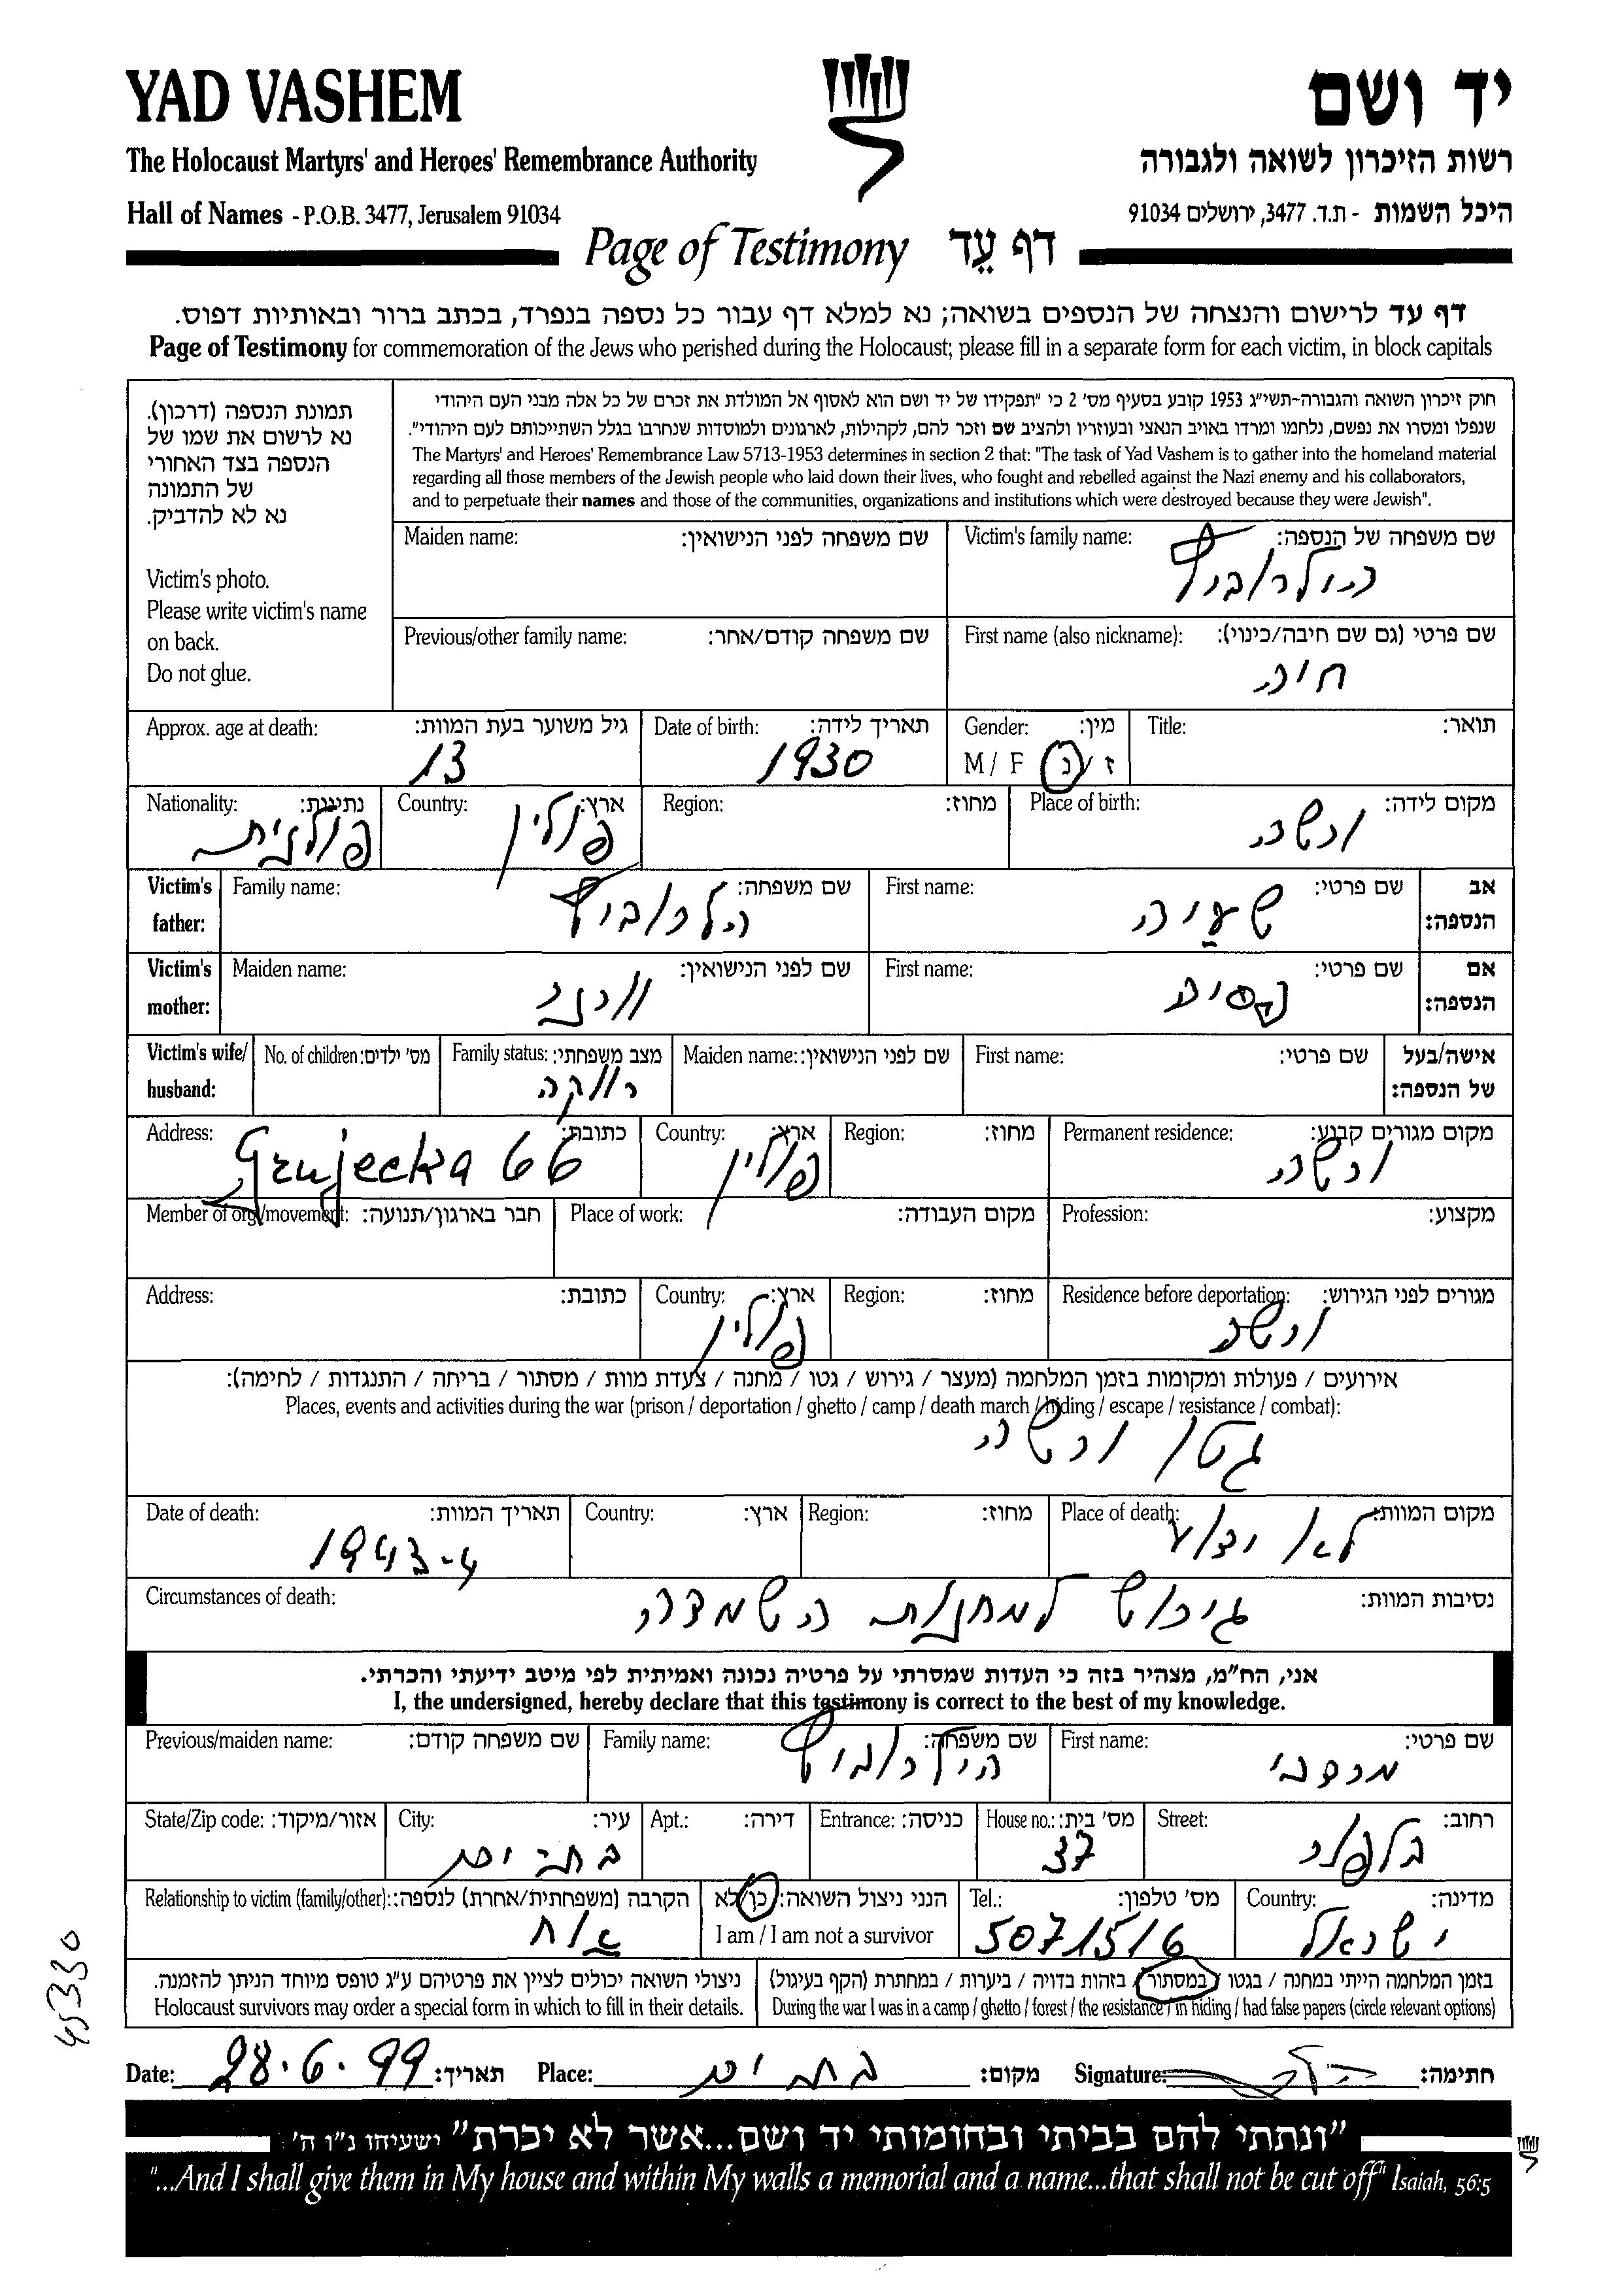 YAD VASHEM
יד ושם
The Holocaust Martyrs' and Heroes' Remembrance Authority
רשות הזיכרון לשואה ולגבורה
Hall of Names - P.O.B. 3477, Jerusalem 91034
היכל השמות - ת.ד. 3477, ירושלים 91034
Page of Testimony דף עֵד
דף עד לרישום והנצחה של הנספים בשואה; נא למלא דף עבור כל נספה בנפרד, בכתב ברור ובאותיות דפוס.
Page of Testimony for commemoration of the Jews who perished during the Holocaust; please fill in a separate form for each victim, in block capitals
תמונת הנספה (דרכון).
נא לרשום את שמו של
הנספה בצד האחורי
של התמונה
נא לא להדביק.
Victim's photo.
Please write victim's name
on back.
Do not glue.
חוק זיכרון השואה והגבורה-תשי"ג 1953 קובע בסעיף מס' 2 כי "תפקידו של יד ושם הוא לאסוף אל המולדת את זכרם של כל אלה מבני העם היהודי
שנפלו ומסרו את נפשם, נלחמו ומרדו באויב הנאצי ובעוזריו ולהציב שם וזכר להם, לקהילות, לארגונים ולמוסדות שנחרבו בגלל השתייכותם לעם היהודי".
The Martyrs' and Heroes' Remembrance Law 5713-1953 determines in section 2 that: "The task of Yad Vashem is to gather into the homeland material
regarding all those members of the Jewish people who laid down their lives, who fought and rebelled against the Nazi enemy and his collaborators,
and to perpetuate their names and those of the communities, organizations and institutions which were destroyed because they were Jewish".
Maiden name: שם משפחה לפני הנישואין:
Victim's family name: שם משפחה של הנספה:
Previous/other family name: שם משפחה קודם/אחר:
First name (also nickname): שם פרטי (גם שם חיבה/כינוי):
חיה
Approx. age at death: גיל משוער בעת המוות:
13
Date of birth: תאריך לידה:
1930
Gender: מין:
M / F ז / נ
Title: תואר:
Nationality: נתינות:
פולנית
Country: ארץ:
פולין
Region: מחוז:
Place of birth: מקום לידה:
ורשה
Victim's father:
Family name: שם משפחה:
הלרוביץ
First name: שם פרטי:
שעיה
אב הנספה:
Victim's mother:
Maiden name: שם לפני הנישואין:
First name: שם פרטי:
אם הנספה:
Victim's wife/ husband:
No. of children: מס' ילדים:
Family status: מצב משפחתי:
רווקה
Maiden name: שם לפני הנישואין:
First name: שם פרטי:
אישה/בעל של הנספה:
Address: כתובת:
Grujecka 66
Country: ארץ:
פולין
Region: מחוז:
Permanent residence: מקום מגורים קבוע:
ורשה
Member of org./movement: חבר בארגון/תנועה:
Place of work: מקום העבודה:
Profession: מקצוע:
Address: כתובת:
Country: ארץ:
פולין
Region: מחוז:
Residence before deportation: מגורים לפני הגירוש:
ורשה
אירועים / פעולות ומקומות בזמן המלחמה (מעצר / גירוש / גטו / מחנה / צעדת מוות / מסתור / בריחה / התנגדות / לחימה):
Places, events and activities during the war (prison / deportation / ghetto / camp / death march / hiding / escape / resistance / combat):
גטו ורשה
Date of death: תאריך המוות:
1943-4
Country: ארץ:
Region: מחוז:
Place of death: מקום המוות:
לא ידוע
Circumstances of death: נסיבות המוות:
גירוש למחנות השמדה
אני, הח"מ, מצהיר בזה כי העדות שמסרתי על פרטיה נכונה ואמיתית לפי מיטב ידיעתי והכרתי.
I, the undersigned, hereby declare that this testimony is correct to the best of my knowledge.
Previous/maiden name: שם משפחה קודם:
Family name: שם משפחה:
הילרוביץ
First name: שם פרטי:
מרדכי
State/Zip code: אזור/מיקוד:
City: עיר:
בת ים
Apt.: דירה:
Entrance: כניסה:
House no.: מס' בית:
37
Street: רחוב:
בלפור
Relationship to victim (family/other): הקרבה (משפחתית/אחרת) לנספה:
אח
הנני ניצול השואה: כן/לא
I am / I am not a survivor
Tel.: מס' טלפון:
5071516
Country: מדינה:
ישראל
ניצולי השואה יכולים לציין את פרטיהם ע"ג טופס מיוחד הניתן להזמנה.
Holocaust survivors may order a special form in which to fill in their details.
בזמן המלחמה הייתי במחנה / בגטו / במסתור / בזהות בדויה / ביערות / במחתרת (הקף בעיגול)
During the war I was in a camp / ghetto / forest / the resistance / in hiding / had false papers (circle relevant options)
45330
Date: 28.6.99 תאריך:
Place: בת ים מקום:
Signature: חתימה:
"ונתתי להם בביתי ובחומותי יד ושם...אשר לא יכרת" ישעיהו נ"ו ה'
"...And I shall give them in My house and within My walls a memorial and a name...that shall not be cut off" Isaiah, 56:5